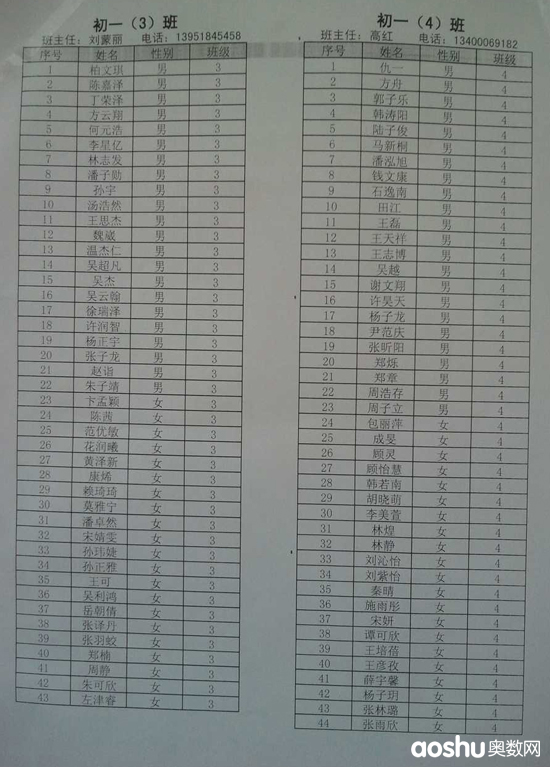 初一（3）班
班主任：刘蒙丽 电话：13951845458
序号 姓名 性别 班级
1 柏文琪 男 3
2 陈嘉泽 男 3
3 丁荣泽 男 3
4 方云翔 男 3
5 何元浩 男 3
6 李星亿 男 3
7 林志发 男 3
8 潘子勋 男 3
9 孙宇 男 3
10 汤浩然 男 3
11 王思杰 男 3
12 魏崴 男 3
13 温杰仁 男 3
14 吴超凡 男 3
15 吴杰 男 3
16 吴云翰 男 3
17 徐瑞泽 男 3
18 许润智 男 3
19 杨正宇 男 3
20 张子龙 男 3
21 赵诣 男 3
22 朱子靖 男 3
23 卞孟颖 女 3
24 陈茜 女 3
25 范优敏 女 3
26 花润曦 女 3
27 黄泽新 女 3
28 康烯 女 3
29 赖琦琦 女 3
30 莫雅宁 女 3
31 潘卓然 女 3
32 宋婧雯 女 3
33 孙玮婕 女 3
34 孙正雅 女 3
35 王可 女 3
36 吴利鸿 女 3
37 岳朝倩 女 3
38 张泽丹 女 3
39 张羽蛟 女 3
40 郑楠 女 3
41 周静 女 3
42 朱可欣 女 3
43 左津睿 女 3
初一（4）班
班主任：高红 电话：13400069182
序号 姓名 性别 班级
1 仇一 男 4
2 方舟 男 4
3 郭子乐 男 4
4 韩涛阳 男 4
5 陆子俊 男 4
6 马新桐 男 4
7 潘泓旭 男 4
8 钱文康 男 4
9 石逸南 男 4
10 田江 男 4
11 王磊 男 4
12 王天祥 男 4
13 王志博 男 4
14 吴越 男 4
15 谢文翔 男 4
16 许昊天 男 4
17 杨子龙 男 4
18 尹范庆 男 4
19 张昕阳 男 4
20 郑烁 男 4
21 郑章 男 4
22 周浩存 男 4
23 周子立 男 4
24 包丽萍 女 4
25 成旻 女 4
26 顾灵 女 4
27 顾怡慧 女 4
28 韩若南 女 4
29 胡晓萌 女 4
30 李美萱 女 4
31 林煌 女 4
32 林静 女 4
33 刘沁怡 女 4
34 刘紫怡 女 4
35 秦晴 女 4
36 施雨彤 女 4
37 宋妍 女 4
38 谭可欣 女 4
39 王培蓓 女 4
40 王彦孜 女 4
41 薛宇馨 女 4
42 杨子玥 女 4
43 张林璐 女 4
44 张雨欣 女 4
aoshu奥数网